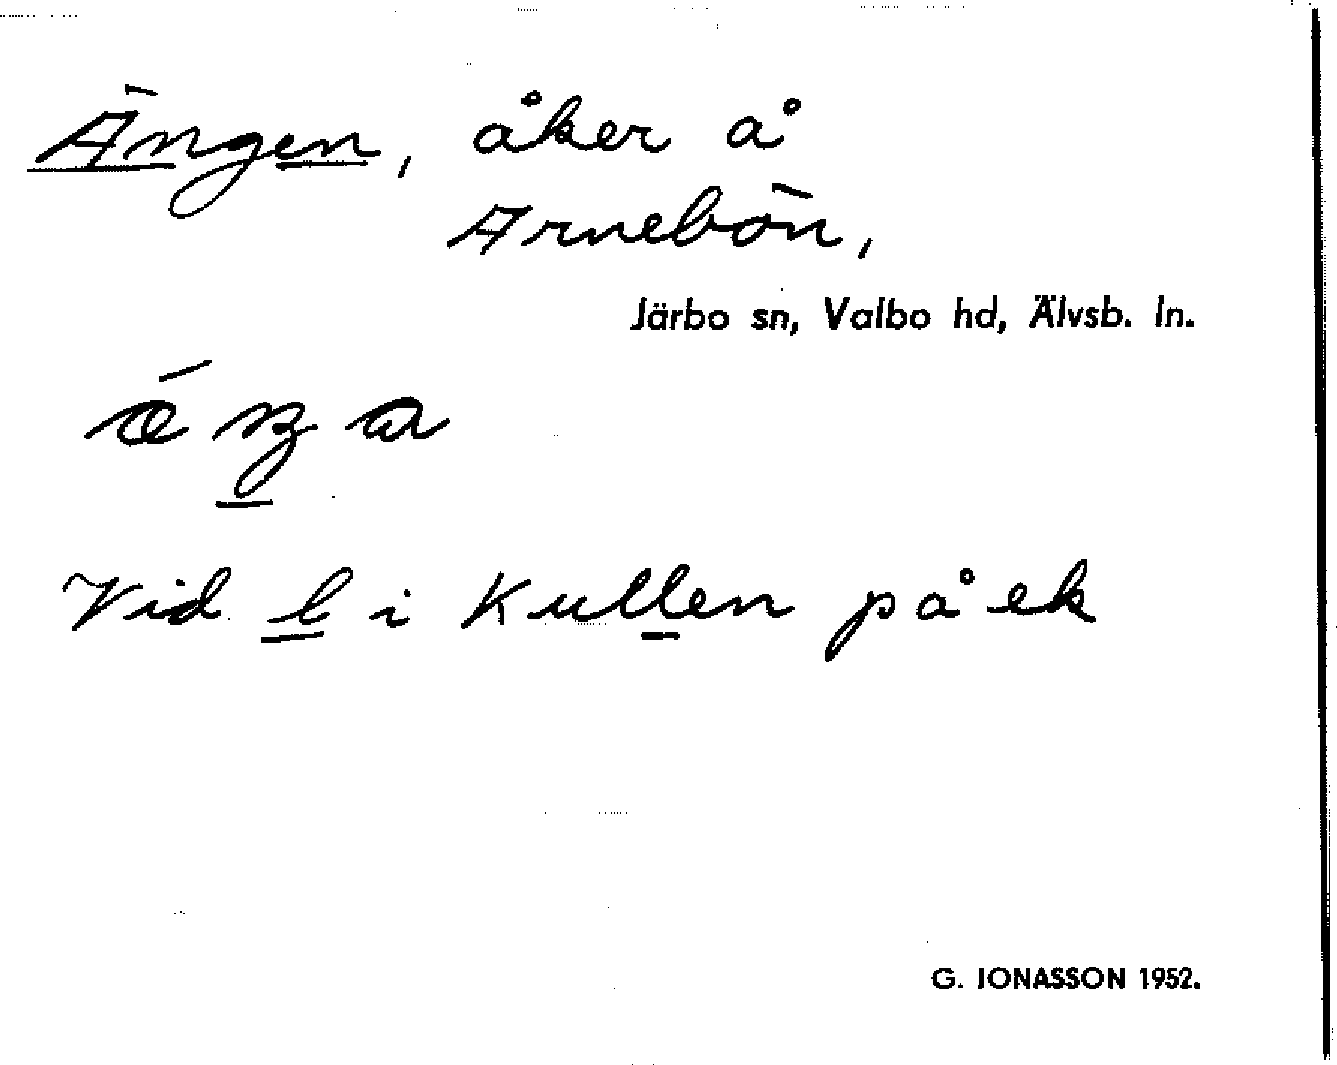 Ängen, åker å
Arnebön,
Järbo sn, Valbo hd, Älvsb. ln.
Vid l i Kullen på ek
G. JONASSON 1952.